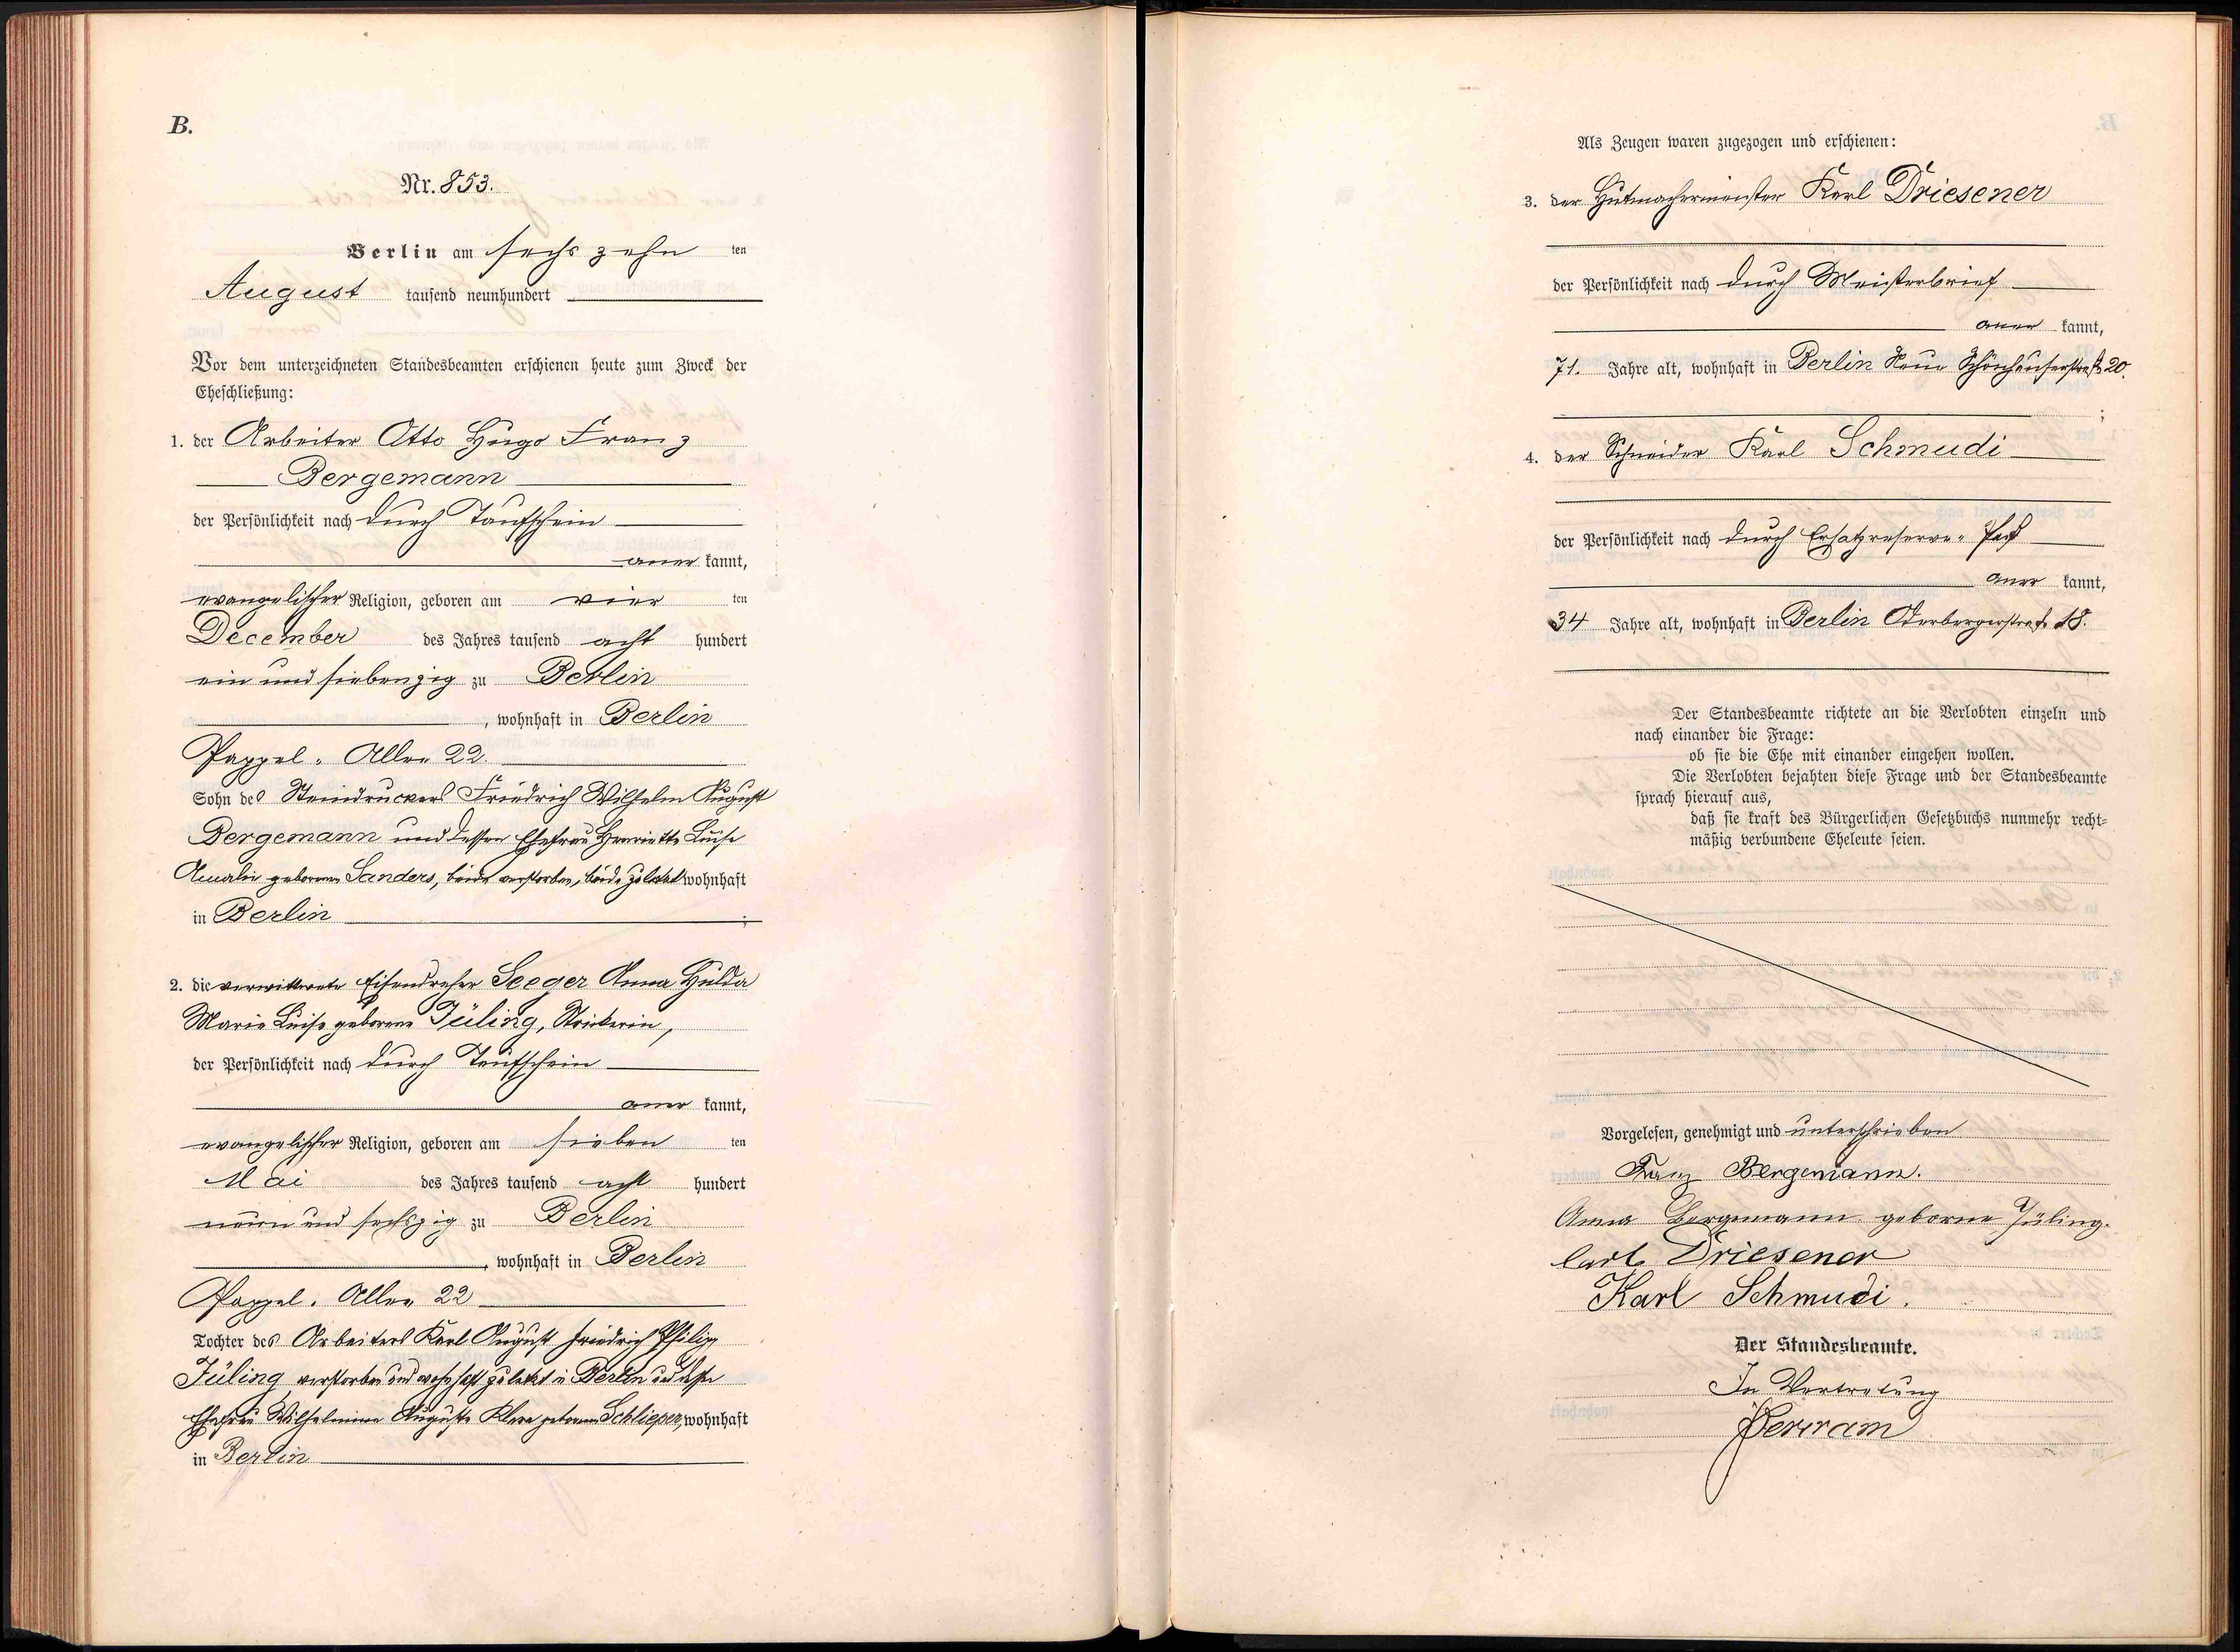 B.
Nr. 853.
Berlin am sechszehn ten
August tausend neunhundert
Vor dem unterzeichneten Standesbeamten erschienen heute zum Zweck der
Eheschließung:
1. der Arbeiter Otto Hugo Franz
Bergemann
der Persönlichkeit nach durch Taufschein
aner kannt,
evangelischer Religion, geboren am vier ten
December des Jahres tausend acht hundert
ein und siebenzig zu Berlin
, wohnhaft in Berlin
Pappel-Allee 22.
Sohn des Steindruckers Friedrich Wilhelm August
Bergemann und dessen Ehefrau Henriette Luise
Amalie geborenen Sanders, beide verstorben, beide zuletzt wohnhaft
in Berlin ;
2. die verwittwete Eisendreher Seeger Anna Hulda
Marie Luise geborene Jüling, Strickerin,
der Persönlichkeit nach durch Taufschein
aner kannt,
evangelischer Religion, geboren am sieben ten
Mai des Jahres tausend acht hundert
neun und sechszig zu Berlin
, wohnhaft in Berlin
Pappel-Allee 22
Tochter des Arbeiters Karl August Friedrich Philipp
Jüling verstorben und wohnhaft zuletzt in Berlin und dessen
Ehefrau Wilhelmine Auguste Klara geborenen Schlieper, wohnhaft
in Berlin
Als Zeugen waren zugezogen und erschienen:
3. der Hutmachermeister Karl Driesener
der Persönlichkeit nach durch Meisterbrief
aner kannt,
71. Jahre alt, wohnhaft in Berlin Neue Schönhauserstraße 20.
;
4. der Schneider Karl Schmudi
der Persönlichkeit nach durch Ersatzreserve-Paß
aner kannt,
34 Jahre alt, wohnhaft in Berlin Oderbergerstraße 18.
Der Standesbeamte richtete an die Verlobten einzeln und
nach einander die Frage:
ob sie die Ehe mit einander eingehen wollen.
Die Verlobten bejahten diese Frage und der Standesbeamte
sprach hierauf aus,
daß sie kraft des Bürgerlichen Gesetzbuchs nunmehr recht-
mäßig verbundene Eheleute seien.
Vorgelesen, genehmigt und unterschrieben
Franz Bergemann.
Anna Bergemann geborne Jüling.
Carl Driesener
Karl Schmudi.
Der Standesbeamte.
In Vertretung
Bertram